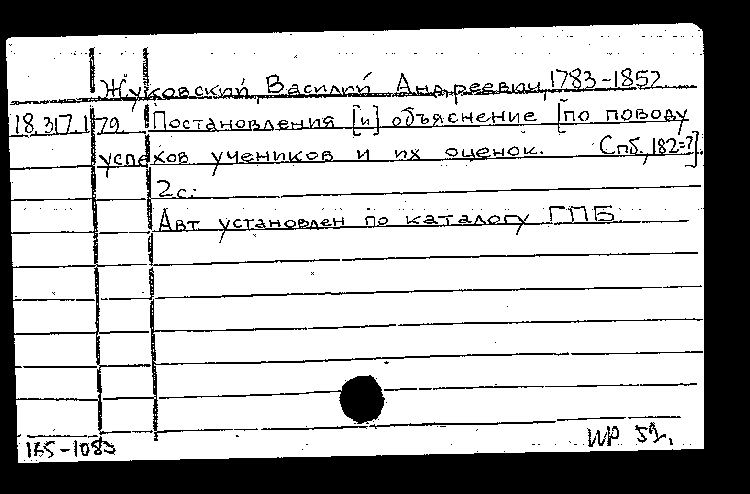 Жуковский, Василий Андреевич, 1783-1852
18.317.1.79. Постановления [и] объяснение [по поводу
успехов учеников и их оценок. Спб., 182=?].
2с.
Авт установлен по каталогу ГПБ
165-1083 ИР 52.